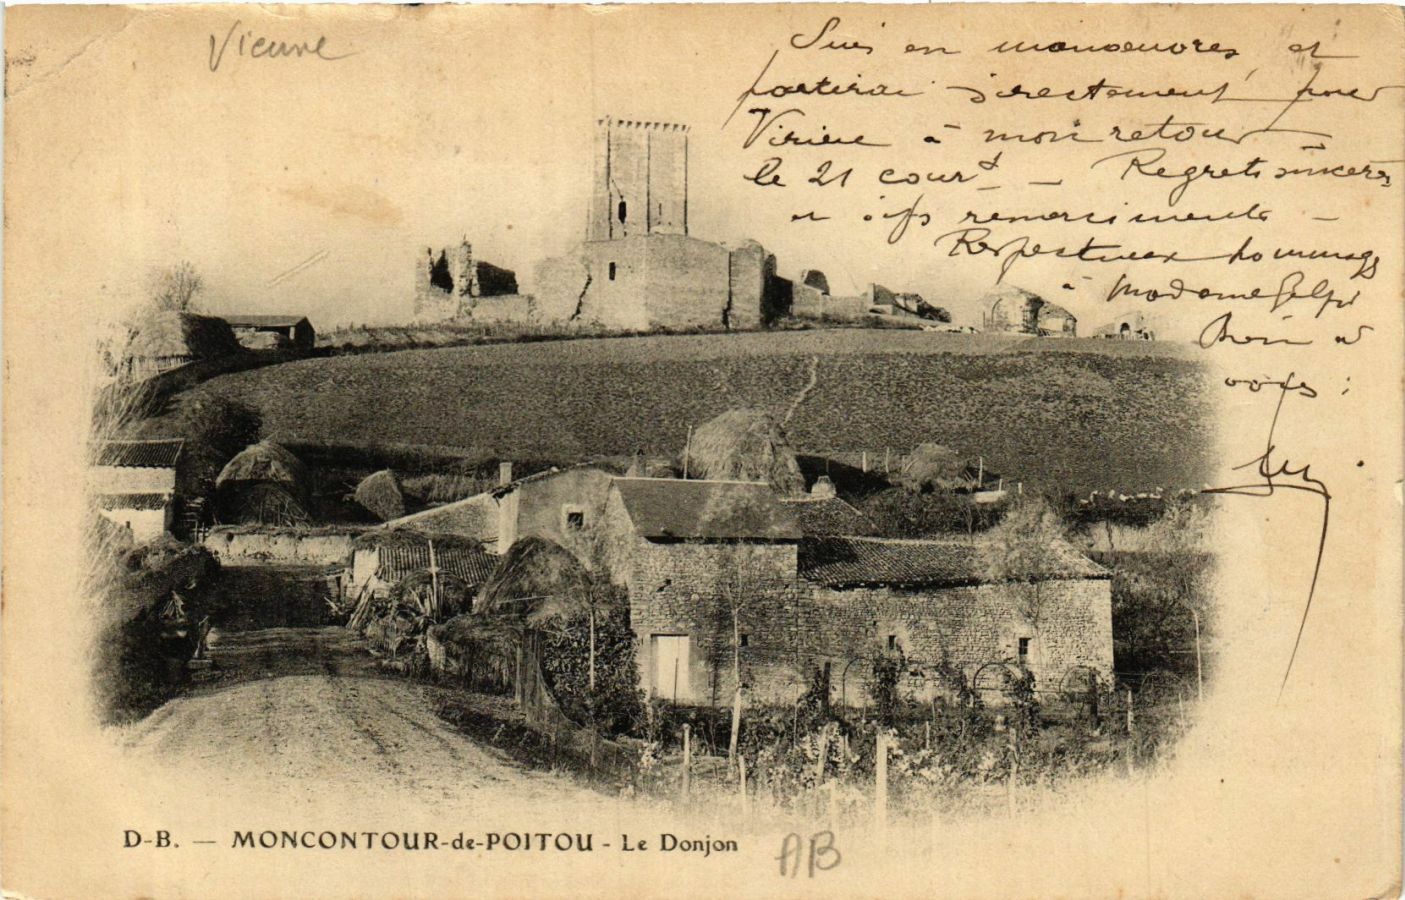 Vienne
Suis en manoeuvres et
partirai directement pour
à mon retour
le 21 cour^t — Regrets sincères
et remerciments —
Respectueux hommages
à Madame
Bien à
vous
D-B. — MONCONTOUR-de-POITOU - Le Donjon
AB